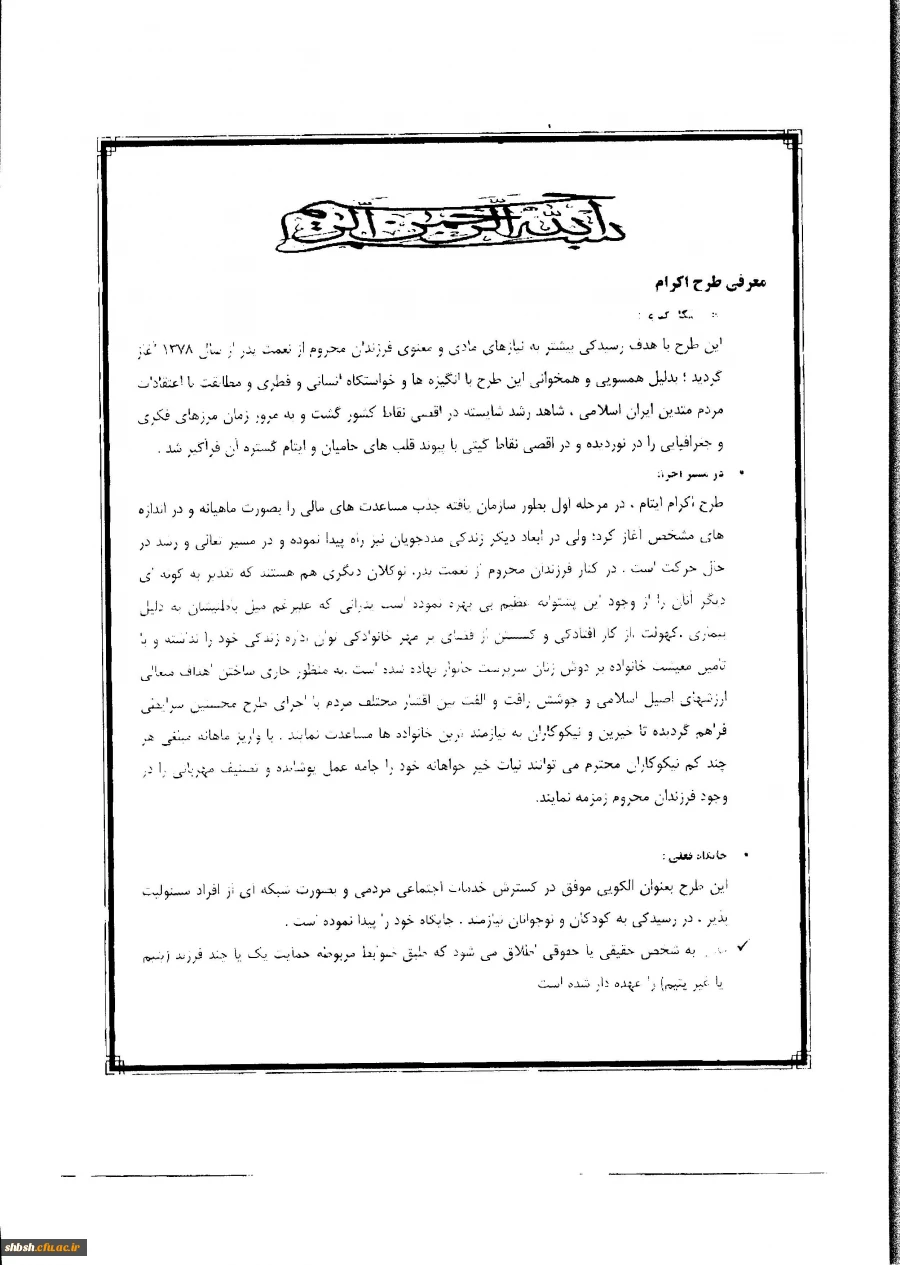 بسم الله الرحمن الرحیم
معرفی طرح اکرام
این طرح با هدف رسیدگی بیشتر به نیازهای مادی و معنوی فرزندان محروم از نعمت پدر از سال ۱۳۷۸ آغاز
گردید ؛ بدلیل همسویی و همخوانی این طرح با انگیزه ها و خواستگاه انسانی و فطری و مطابقت با اعتقادات
مردم متدین ایران اسلامی ، شاهد رشد شایسته در اقصی نقاط کشور گشت و به مرور زمان مرزهای فکری
و جغرافیایی را در نوردیده و در اقصی نقاط گیتی با پیوند قلب های حامیان و ایتام گستره آن فراگیر شد .
• در مسیر اجرا:
طرح اکرام ایتام ، در مرحله اول بطور سازمان یافته جذب مساعدت های مالی را بصورت ماهیانه و در اندازه
های مشخص آغاز کرد؛ ولی در ابعاد دیگر زندگی مددجویان نیز راه پیدا نموده و در مسیر تعالی و رشد در
حال حرکت است . در کنار فرزندان محروم از نعمت پدر، نوگلان دیگری هم هستند که تقدیر به گونه ای
دیگر آنان را از وجود این پشتوانه عظیم بی بهره نموده است پدرانی که علیرغم میل باطنیشان به دلیل
بیماری ،کهولت ،از کار افتادگی و گسستن از فضای پر مهر خانوادگی توان اداره زندگی خود را نداشته و یا
تأمین معیشت خانواده بر دوش زنان سرپرست خانوار نهاده شده است .به منظور جاری ساختن اهداف متعالی
ارزشهای اصیل اسلامی و جوشش رافت و الفت بین اقشار مختلف مردم با اجرای طرح محسنین شرایطی
فراهم گردیده تا خیرین و نیکوکاران به نیازمند ترین خانواده ها مساعدت نمایند . با واریز ماهانه مبلغی هر
چند کم نیکوکاران محترم می توانند نیات خیر خواهانه خود را جامه عمل پوشانده و تصنیف مهربانی را در
وجود فرزندان محروم زمزمه نمایند.
• جایگاه فعلی :
این طرح بعنوان الگویی موفق در گسترش خدمات اجتماعی مردمی و بصورت شبکه ای از افراد مسئولیت
پذیر ، در رسیدگی به کودکان و نوجوانان نیازمند ، جایگاه خود را پیدا نموده است .
✓ به شخص حقیقی یا حقوقی اطلاق می شود که طبق ضوابط مربوطه حمایت یک یا چند فرزند (یتیم
یا غیر یتیم) را عهده دار شده است
shbsh.cfu.ac.ir